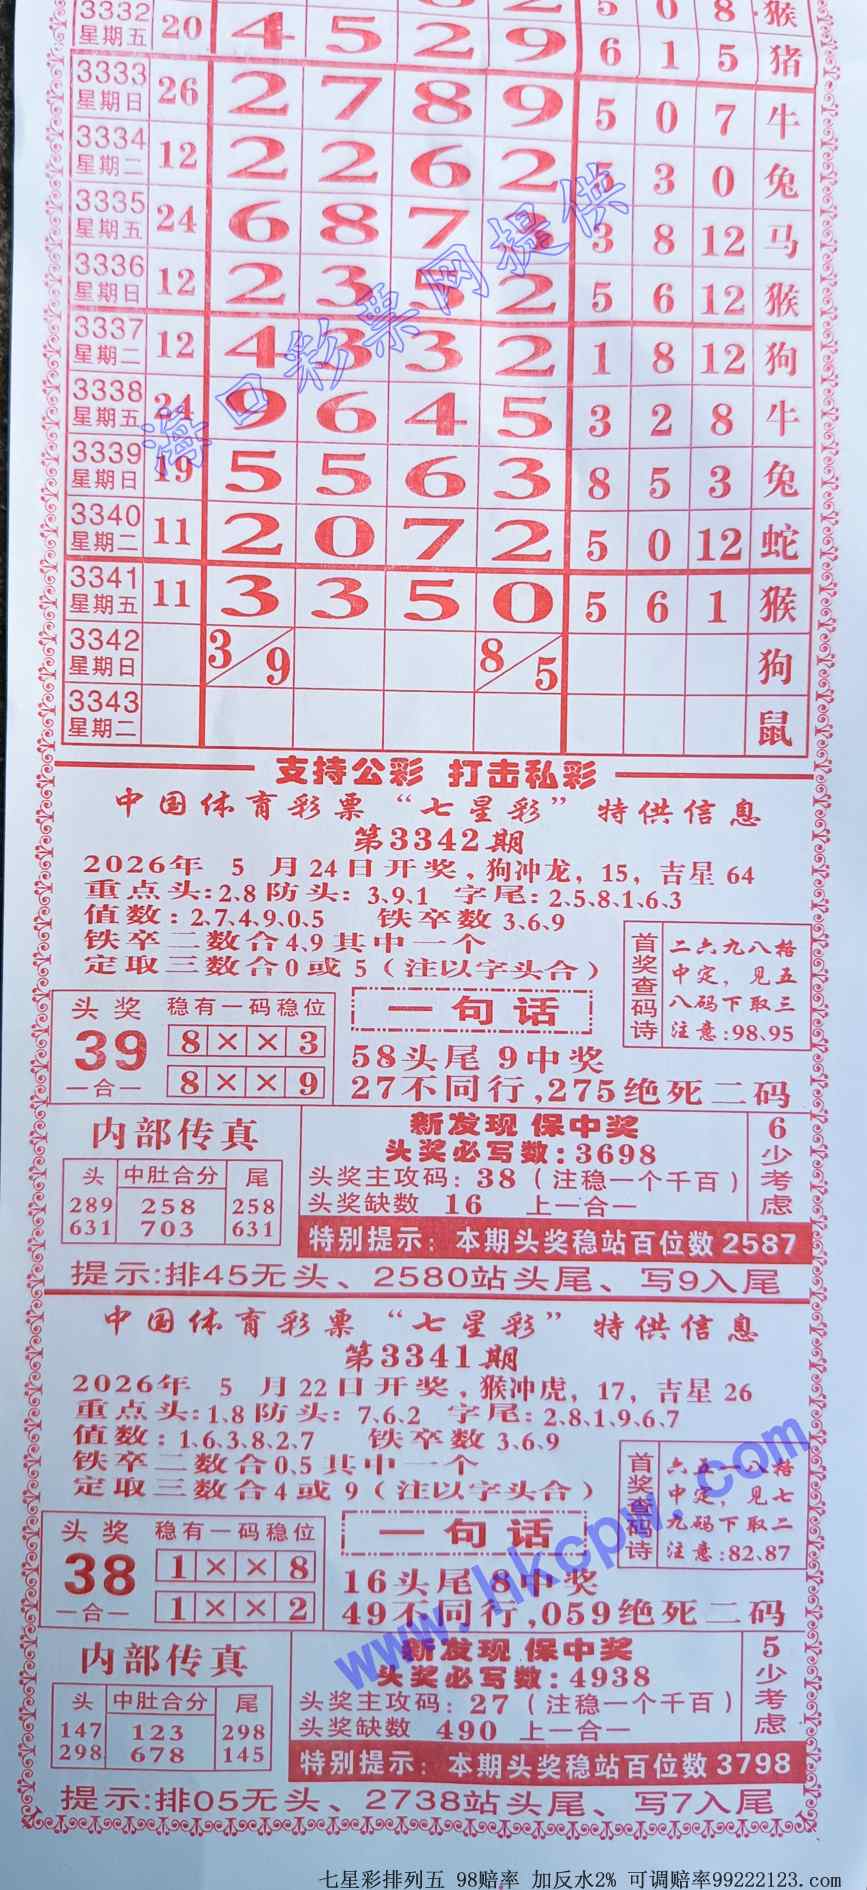 3332 星期五 20 4 5 2 9 5 0 8 猴
6 1 5 猪
3333 星期日 26 2 7 8 9 5 0 7 牛
3334 星期二 12 2 2 6 2 5 3 0 兔
3335 星期五 24 6 8 7 3 8 12 马
3336 星期日 12 2 3 5 2 5 6 12 猴
3337 星期二 12 4 3 3 2 1 8 12 狗
3338 星期五 24 9 6 4 5 3 2 8 牛
3339 星期日 19 5 5 6 3 8 5 3 兔
3340 星期二 11 2 0 7 2 5 0 12 蛇
3341 星期五 11 3 3 5 0 5 6 1 猴
3342 星期日 3/9 8/5 狗
3343 星期二 鼠
海口彩票网提供
支持公彩 打击私彩
中国体育彩票“七星彩”特供信息
第3342期
2026年 5 月24日开奖,狗冲龙,15,吉星64
重点头:2.8防头:3.9.1 字尾:2.5.8.1.6.3
值数:2.7.4.9.0.5 铁卒数3.6.9
铁卒二数合4.9其中一个
定取三数合0或5(注以字头合)
首奖查码诗
二六九八格
中定,见五
八码下取三
注意:98.95
头奖
39
一合一
稳有一码稳位
8××3
8××9
一句话
58头尾 9中奖
27不同行,275绝死二码
内部传真
头 中肚合分 尾
289 258 258
631 703 631
新发现 保中奖
头奖必写数:3698
头奖主攻码:38(注稳一个千百)
头奖缺数 16 上一合一
6少考虑
特别提示:本期头奖稳站百位数2587
提示:排45无头、2580站头尾、写9入尾
中国体育彩票“七星彩”特供信息
第3341期
2026年 5 月22日开奖,猴冲虎,17,吉星26
重点头:1.8防头:7.6.2 字尾:2.8.1.9.6.7
值数:1.6.3.8.2.7 铁卒数3.6.9
铁卒二数合0.5其中一个
定取三数合4或9(注以字头合)
首奖查码诗
六五一八格
中定,见七
九码下取二
注意:82.87
头奖
38
一合一
稳有一码稳位
1××8
1××2
一句话
16头尾 8中奖
49不同行,059绝死二码
内部传真
头 中肚合分 尾
147 123 298
298 678 145
新发现 保中奖
头奖必写数:4938
头奖主攻码:27(注稳一个千百)
头奖缺数 490 上一合一
5少考虑
特别提示:本期头奖稳站百位数3798
提示:排05无头、2738站头尾、写7入尾
www.hkcpw.com
七星彩排列五 98赔率 加反水2% 可调赔率99222123.com